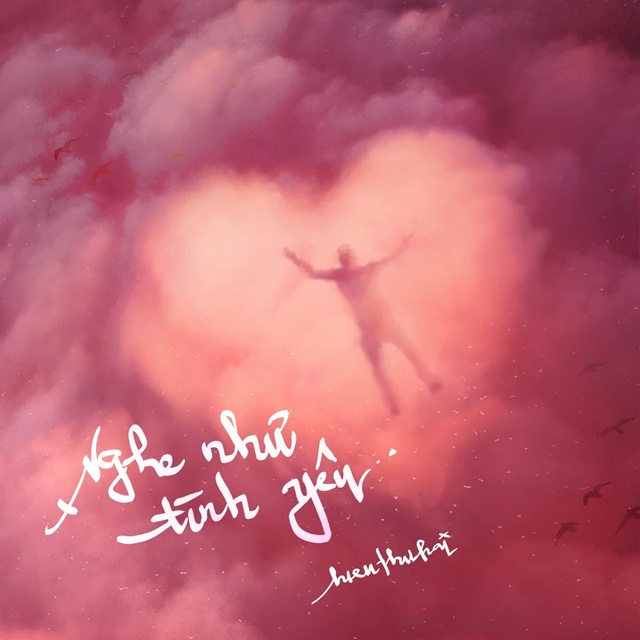 Nghe như
tình yêu..
hieuthuhai